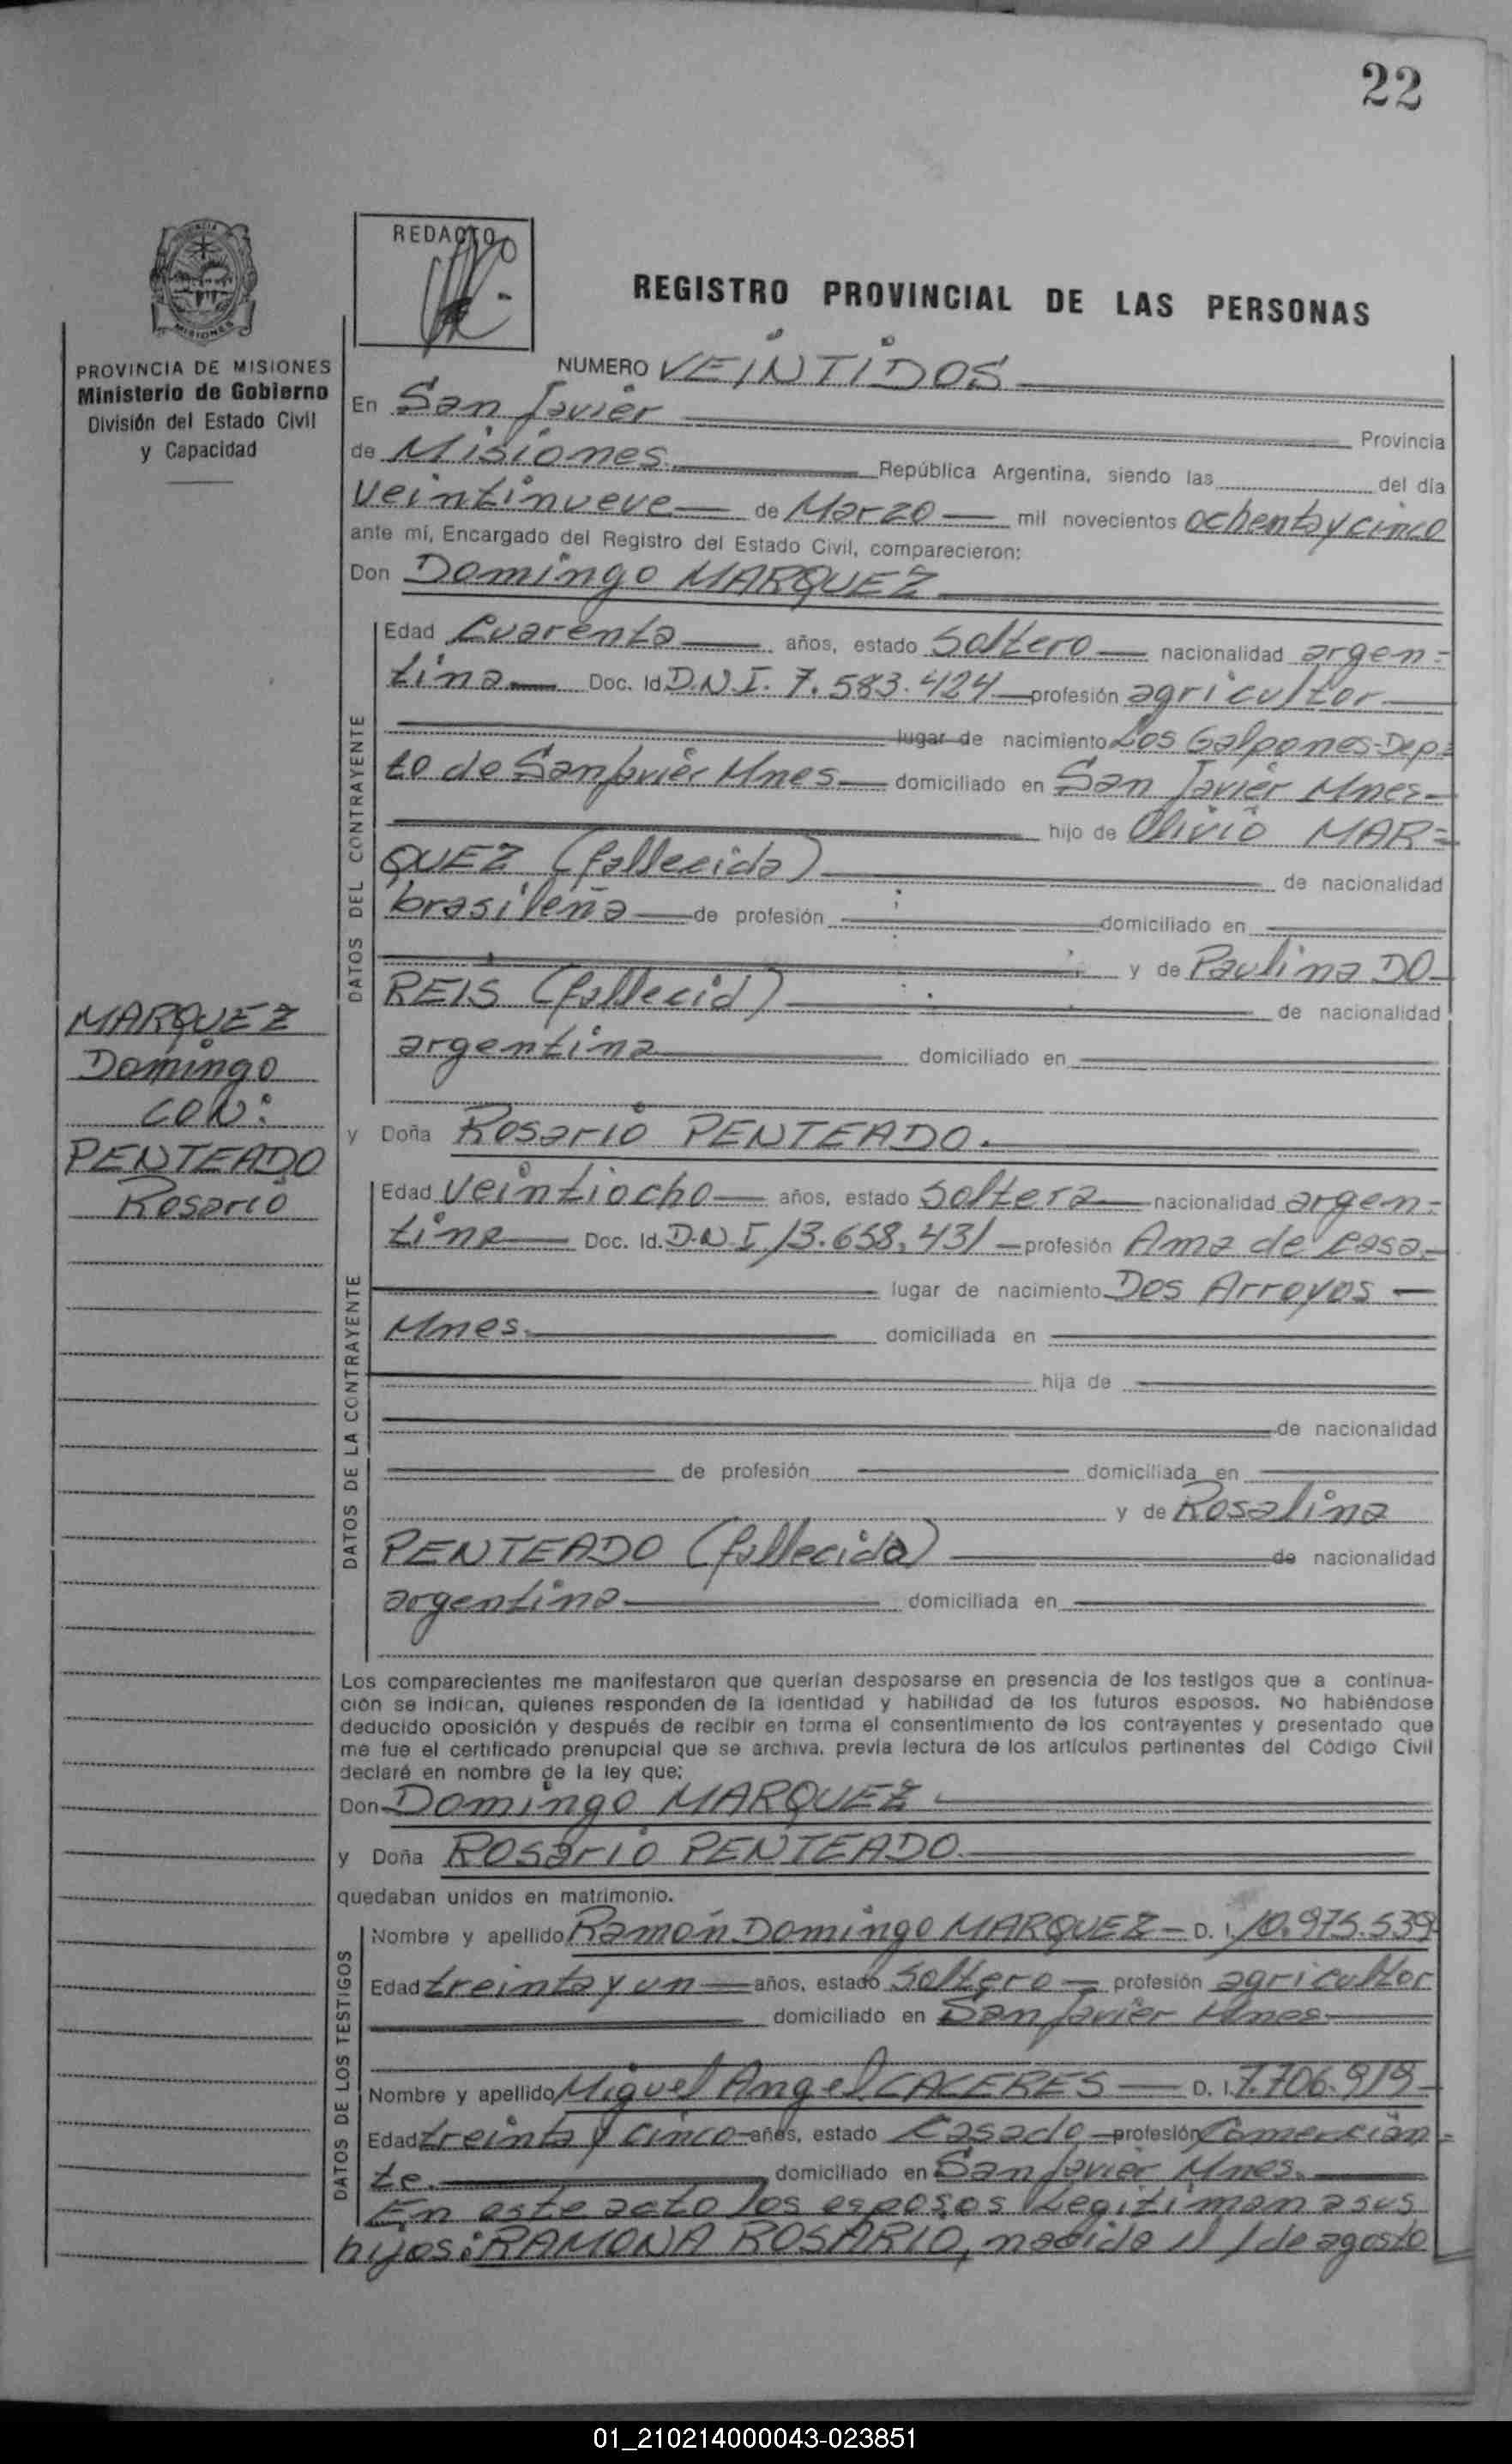 22
REDACTO
REGISTRO PROVINCIAL DE LAS PERSONAS
MISIONES
PROVINCIA DE MISIONES
Ministerio de Gobierno
División del Estado Civil
y Capacidad
NUMERO VEINTIDOS
En San Javier Provincia
de Misiones República Argentina, siendo las del día
veintinueve de Marzo mil novecientos ochenta y cinco
ante mí, Encargado del Registro del Estado Civil, comparecieron:
Don Domingo MARQUEZ
DATOS DEL CONTRAYENTE
Edad Cuarenta años, estado Soltero nacionalidad argen=
tina Doc. Id. D.N.I. 7.583.424 profesión agricultor
lugar de nacimiento Los Galpones-Dep=
to de San Javier Mnes. domiciliado en San Javier Mnes-
hijo de Olivio MAR=
QUEZ (fallecida) de nacionalidad
brasileña de profesión domiciliado en
y de Paulina DO
REIS (fallecid) de nacionalidad
argentina domiciliado en
MARQUEZ
Domingo
CON:
PENTEADO
Rosario
y Doña Rosario PENTEADO.
DATOS DE LA CONTRAYENTE
Edad veintiocho años, estado Soltera nacionalidad argen=
tina Doc. Id. D.N.I 13.658.431 profesión Ama de Casa.
lugar de nacimiento Dos Arroyos
Mnes. domiciliada en
hija de
de nacionalidad
de profesión domiciliada en
y de Rosalina
PENTEADO (fallecida) de nacionalidad
argentina domiciliada en
Los comparecientes me manifestaron que querían desposarse en presencia de los testigos que a continua-
ción se indican, quienes responden de la identidad y habilidad de los futuros esposos. No habiéndose
deducido oposición y después de recibir en forma el consentimiento de los contrayentes y presentado que
me fue el certificado prenupcial que se archiva, previa lectura de los artículos pertinentes del Código Civil
declaré en nombre de la ley que:
Don Domingo MARQUEZ
y Doña Rosario PENTEADO.
quedaban unidos en matrimonio.
DATOS DE LOS TESTIGOS
Nombre y apellido Ramón Domingo MARQUEZ - D. I. 10.975.539
Edad treinta y un años, estado Soltero profesión agricultor
domiciliado en San Javier Mnes
Nombre y apellido Miguel Angel CACERES D. I. 7.706.919
Edad treinta y cinco años, estado Casado profesión Comercian=
te. domiciliado en San Javier Mnes.
En este acto los esposos Legitiman a sus
hijos: RAMONA ROSARIO, nacida el 1 de agosto
01_210214000043-023851